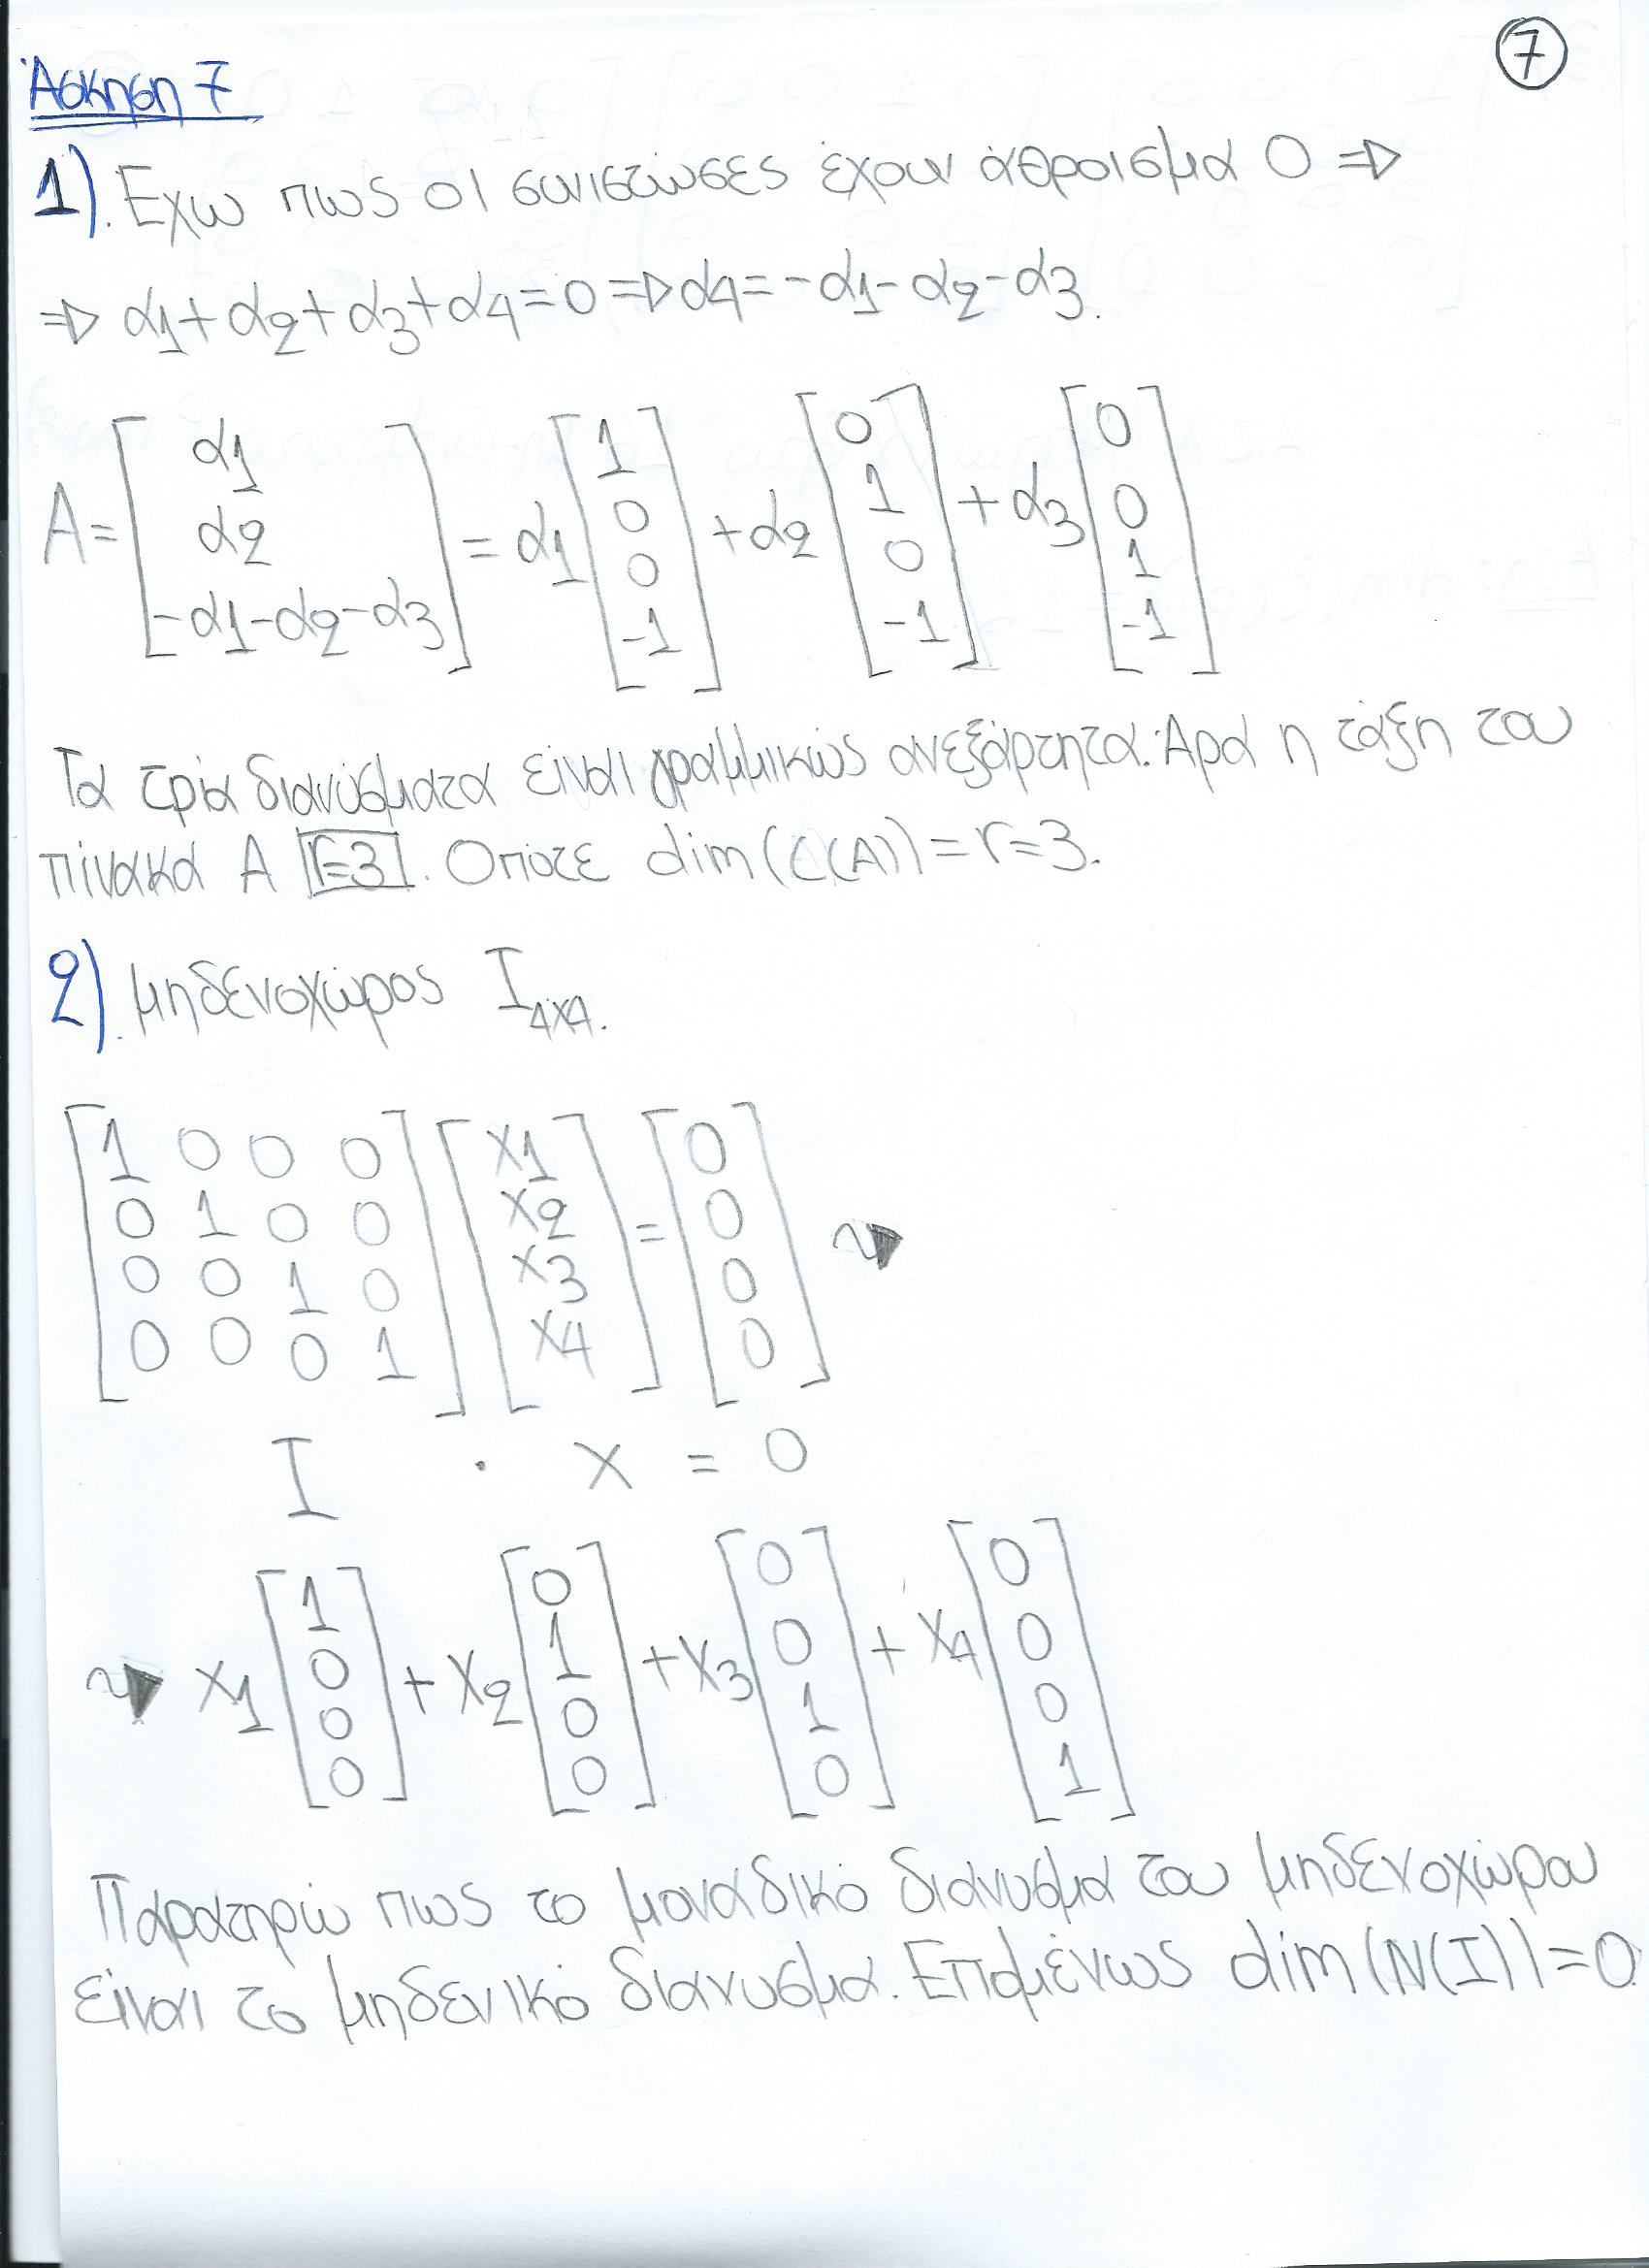 7
Άσκηση 7
1). Έχω πως οι συνιστώσες έχουν άθροισμα 0 ⇒
⇒ α1+α2+α3+α4=0 ⇒ α4=-α1-α2-α3.
A = [α1 α2 -α1-α2-α3] = α1 [1 0 0 -1] + α2 [0 1 0 -1] + α3 [0 0 1 -1]
Τα τρία διανύσματα είναι γραμμικώς ανεξάρτητα. Άρα η τάξη του
πίνακα A r=3. Οπότε dim(C(A))=r=3.
2). μηδενοχώρος I4x4.
[1 0 0 0
0 1 0 0
0 0 1 0
0 0 0 1] [x1 x2 x3 x4] = [0 0 0 0] ⇝
I · x = 0
⇝ x1 [1 0 0 0] + x2 [0 1 0 0] + x3 [0 0 1 0] + x4 [0 0 0 1]
Παρατηρώ πως το μοναδικό διάνυσμα του μηδενοχώρου
είναι το μηδενικό διάνυσμα. Επομένως dim(N(I))=0.